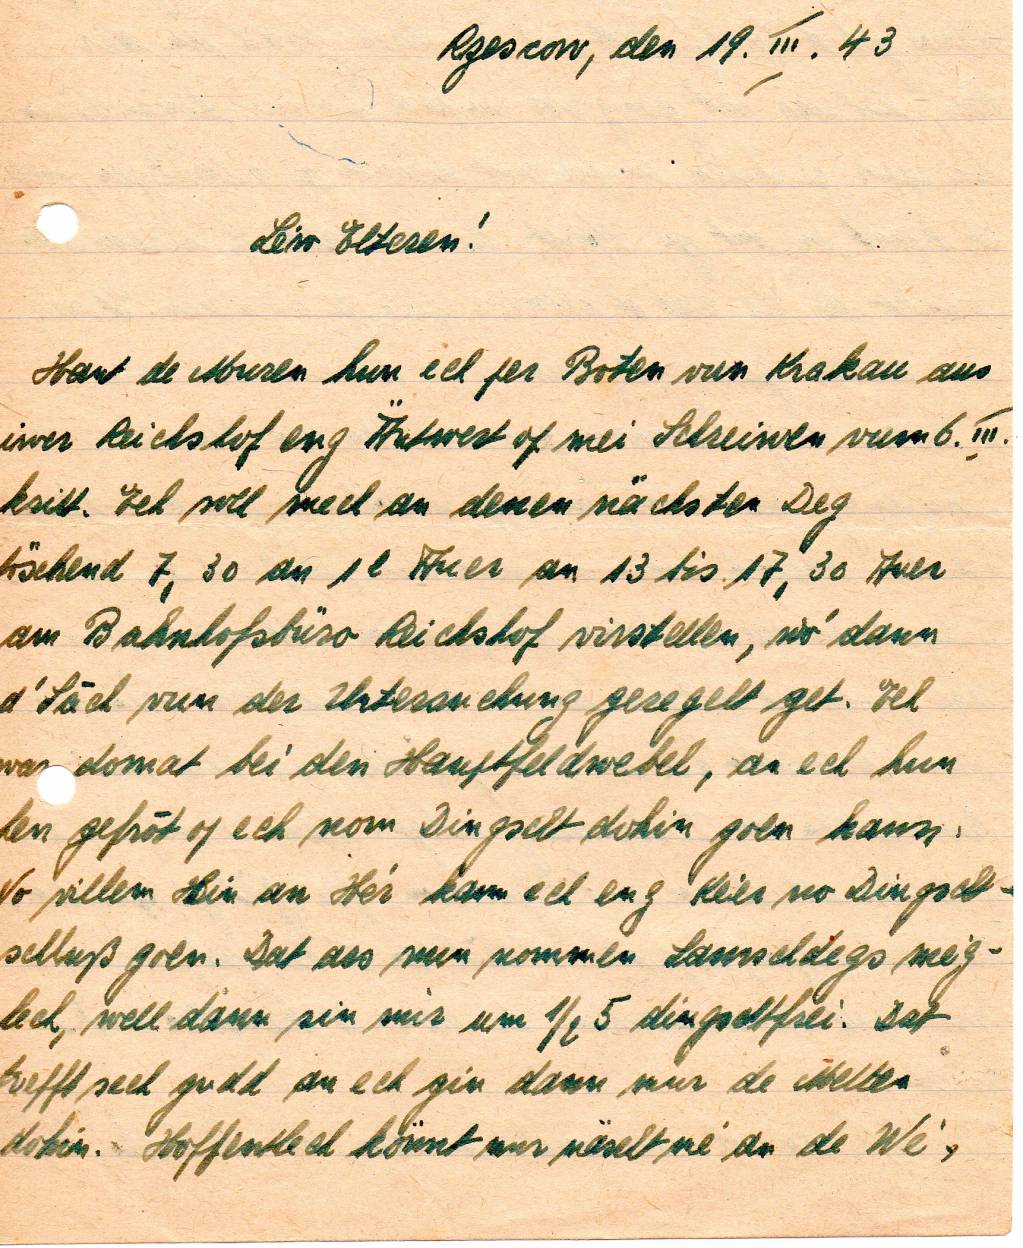 Rzeszow, den 19. III. 43
Leiw Elteren!
Haut de Muren hun ech per Boten vun Krakau aus
iwer Reichshof eng Äntwert op mei Schreiwen vum 6. III.
kritt. Ech soll mech an denen nächsten Deg
töschend 7,30 an 12 Auer an 13 bis 17,30 Auer
am Bahnhofsbüro Reichshof virstellen, wo' dann
d'Säch vun der Untersuchung geregelt get. Ech
war domat bei den Hauptfeldwebel, an ech hun
den gefrot op ech nom Dingscht dohin goen kann.
No villem Hin an Hér kann ech eng Keier no Dingscht-
schluß goen. Dat ass nun nommen Samschdegs meig-
lech, well dann sin mir um 1/2 5 dingschtfrei. Dat
trefft sech gudd an ech gin dann mur de Metten
dohin. Hoffentlech könnt mur näscht né an de Wé,